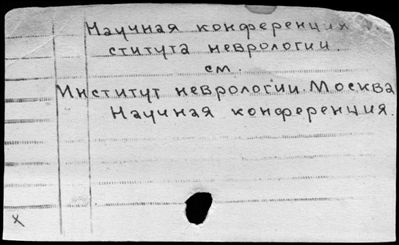 Научная конференция
ститута неврологии.
см.
Институт неврологии. Москва
Научная конференция.
x